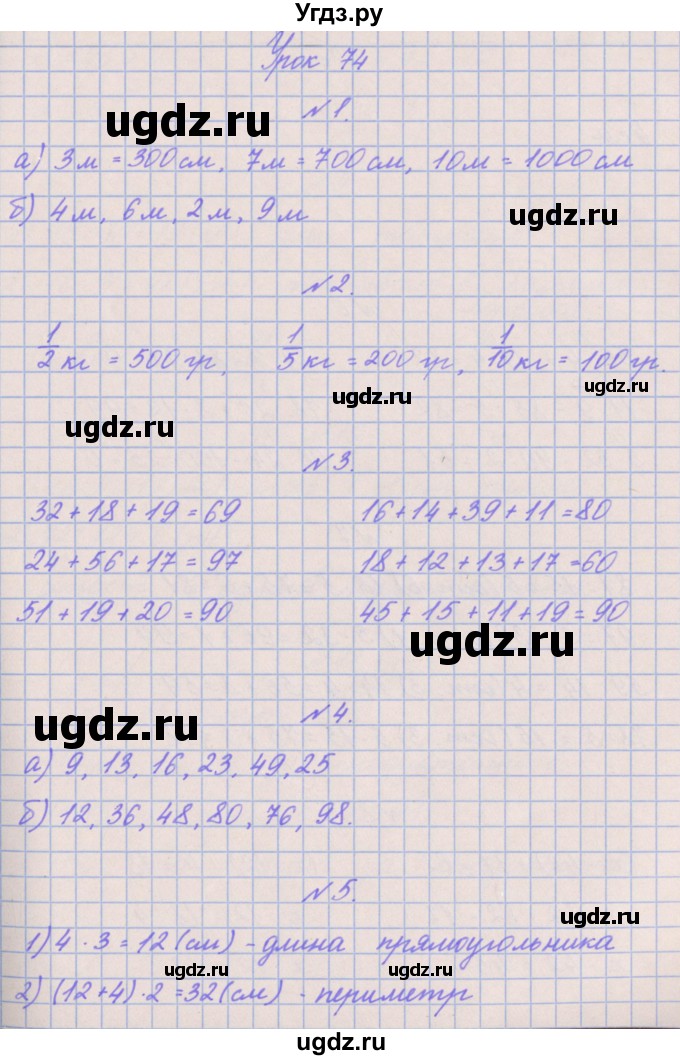 Угдз.ру
Урок 74
ugdz.ru №1.
а) 3м = 300см, 7м = 700см, 10м = 1000см
б) 4м, 6м, 2м, 9м ugdz.ru
№2.
1/2 кг = 500гр, 1/5 кг = 200гр, 1/10 кг = 100гр.
ugdz.ru ugdz.ru ugdz.ru
№3.
32+18+19=69 16+14+39+11=80
24+56+17=97 18+12+13+17=60
51+19+20=90 45+15+11+19=90
ugdz.ru
ugdz.ru №4.
а) 9, 13, 16, 23, 49, 25
б) 12, 36, 48, 80, 76, 98.
№5.
ugdz.ru
1) 4 · 3 = 12 (см) - длина прямоугольника
ugdz.ru ugdz.ru
2) (12+4) · 2 = 32 (см) - периметр
ugdz.ru